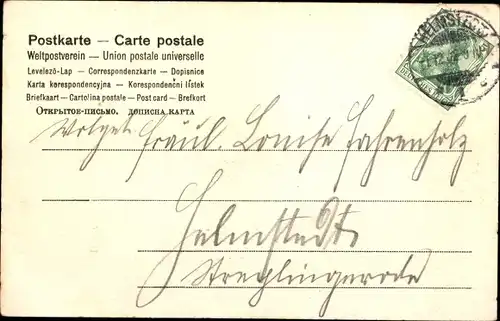 Postkarte — Carte postale
Weltpostverein — Union postale universelle
Levelező-Lap — Correspondenzkarte — Dopisnice
Karta korespondencyjna — Korespondenční lístek
Briefkaart — Cartolina postale — Post card — Brefkort
Открытое-письмо. дописна карта
HELMSTEDT
Wolgeb. Fräul. Louise Fahrenholz
Helmstedt